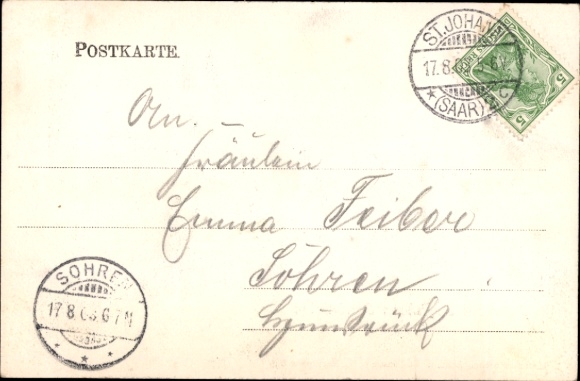 POSTKARTE.
ST. JOHANN
17.8.
* (SAAR) 2 C
5
5
An
Fräulein
Emma Feiber
Söhren
Hunsrück
SOHREN
17.8.03 6-7N
* * *